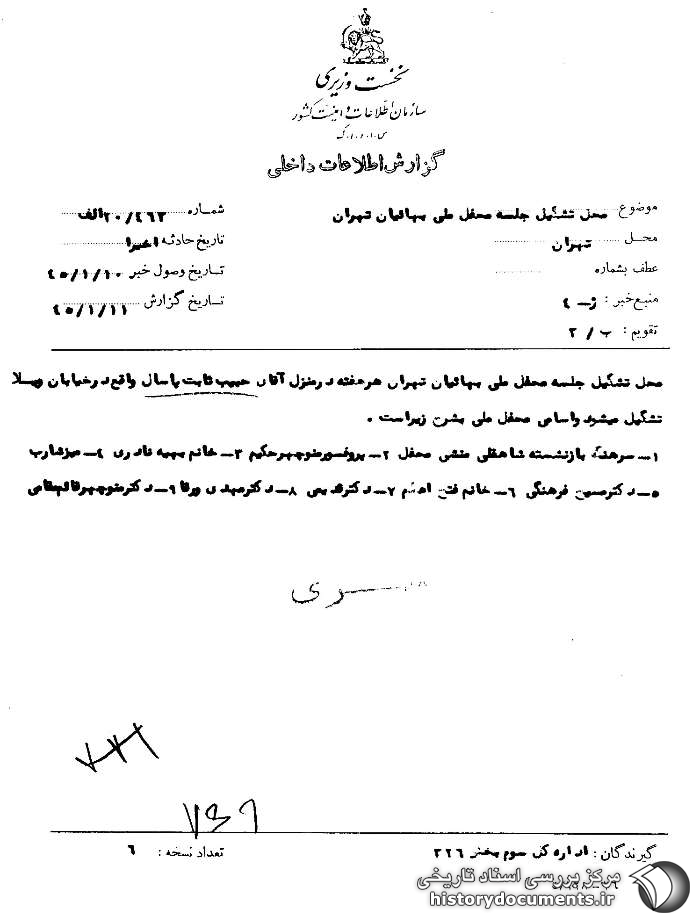 نخست وزیری
سازمان اطلاعات و امنیت کشور
س.ا.و.ا.ک
گزارش اطلاعات داخلی
موضوع محل تشکیل جلسه محفل ملی بهائیان تهران
شماره ۲۰/۴۶۳الف
محل تهران
تاریخ حادثه اخیرا
عطف بشماره
تاریخ وصول خبر ۴۵/۱/۱۰
منبع خبر : ژ-۴
تاریخ گزارش ۴۵/۱/۱۱
تقویم : ب/۲
محل تشکیل جلسه محفل ملی بهائیان تهران هرهفته درمنزل آقای حبیب ثابت پاسال واقع درخیابان ویلا
تشکیل میشود واسامی محفل ملی بشرح زیراست .
۱- سرهنگ بازنشسته شاهقلی منشی محفل ۲- پروفسورمنوچهرحکیم ۳- خانم بهیه نادری ۴-
۵- دکترحسین فرهنگی ۶- خانم فتح اعظم ۷- دکترقدیمی ۸- دکترمهدی ورقا ۹- دکترمنوچهرقائم‌مقامی
سری
گیرندگان : اداره کل سوم بخش ۳۲۶
تعداد نسخه : ۶
مرکز بررسی اسناد تاریخی
historydocuments.ir